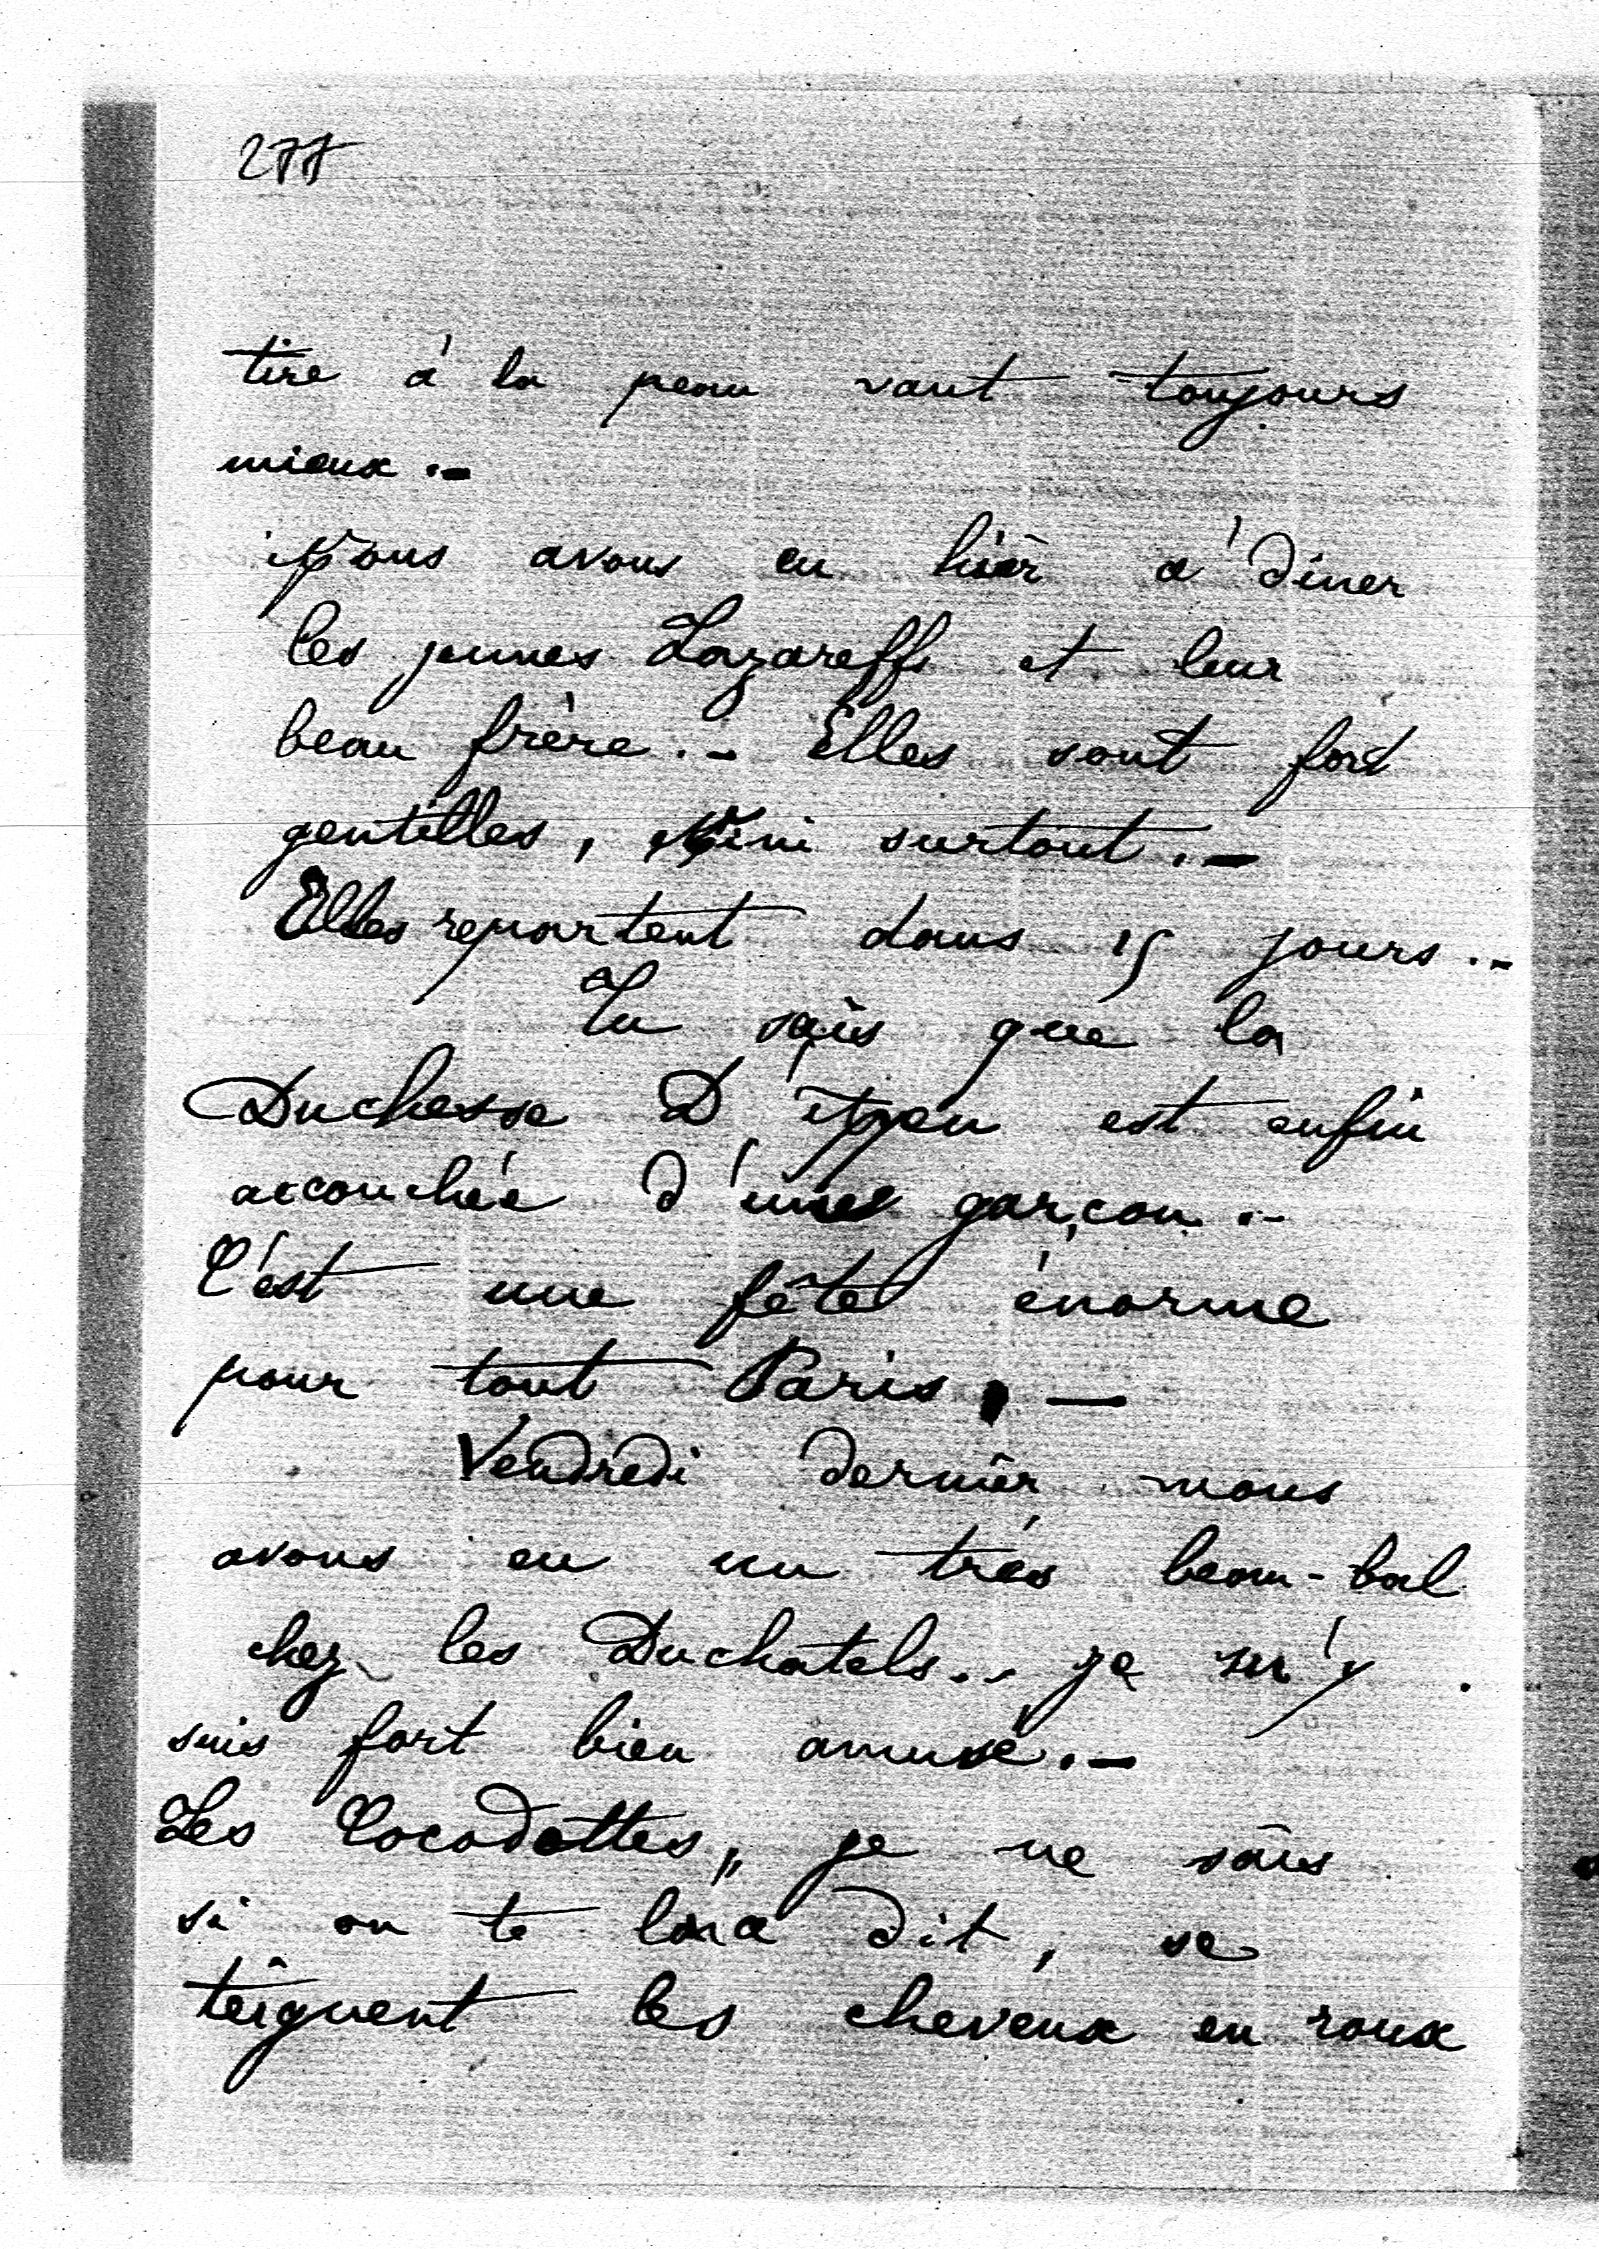 277
tire à la peau vaut toujours
mieux.-
Nous avons eu hier à diner
les jeunes Lazareffs et leur
beau frère.- Elles sont fort
gentilles, Nini surtout.-
Elles repartent dans 15 jours.-
Tu sais que la
Duchesse D'Ayen est enfin
accouchée d'une garçon.-
C'est une fête énorme
pour tout Paris.-
Vendredi dernier nous
avons eu un très beau-bal
chez les Duchatels.. je m'y
suis fort bien amusé.-
Les Cocodettes,, je ne sais
si on te l'a dit, se
teignent les cheveux en roux